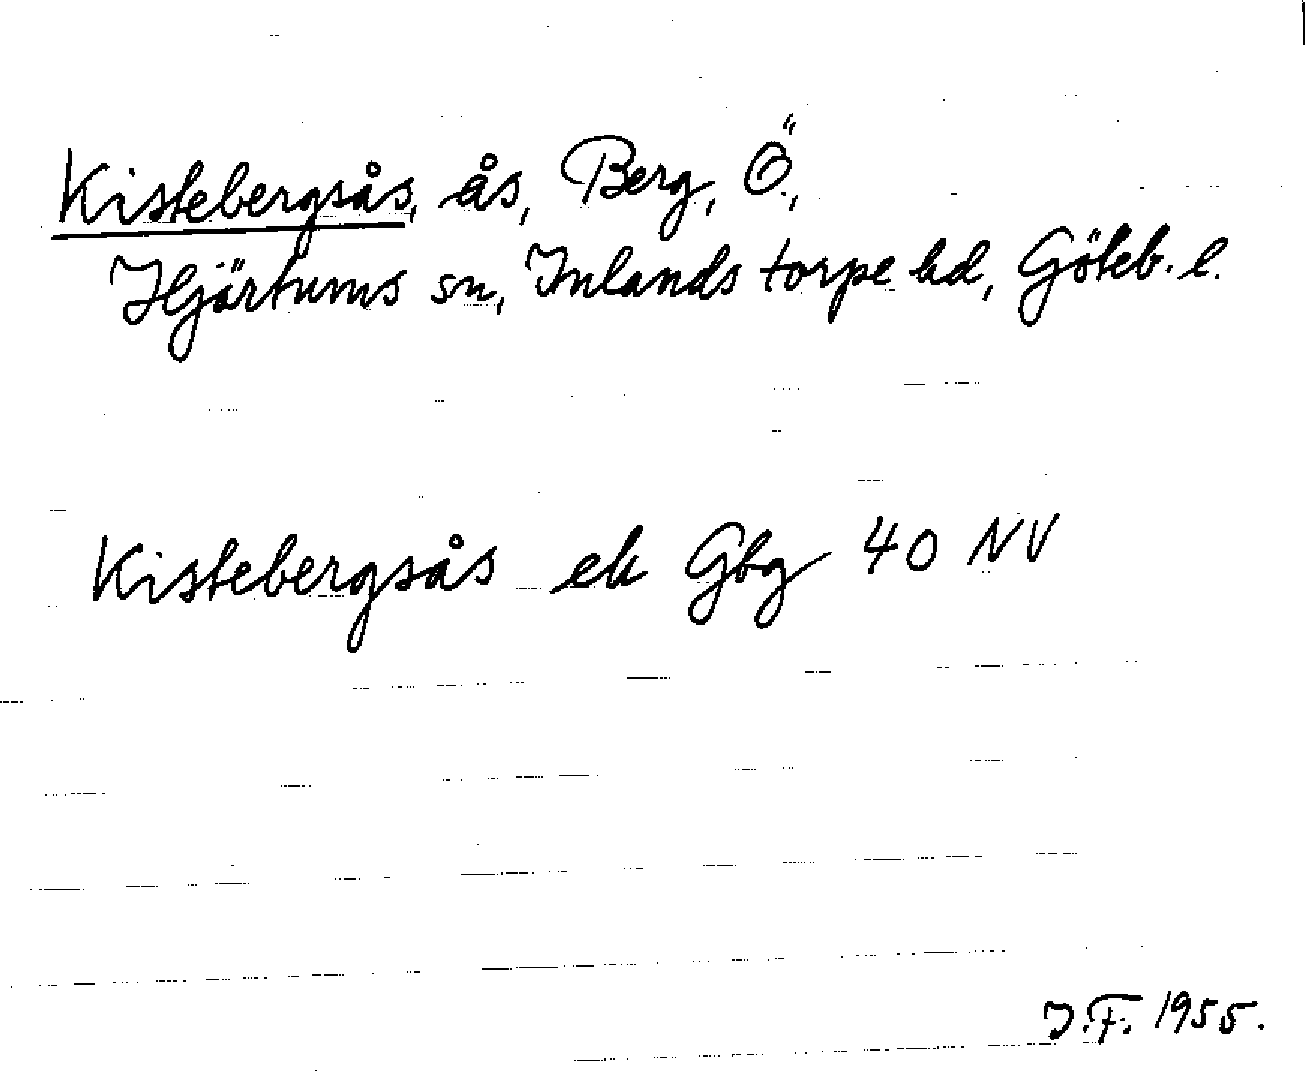 Kistebergsås, ås, Berg, Ö.,
Hjärtums sn, Inlands torpe hd, Göteb. l.
Kistebergsås ek Gbg 40 NV
J.F. 1955.